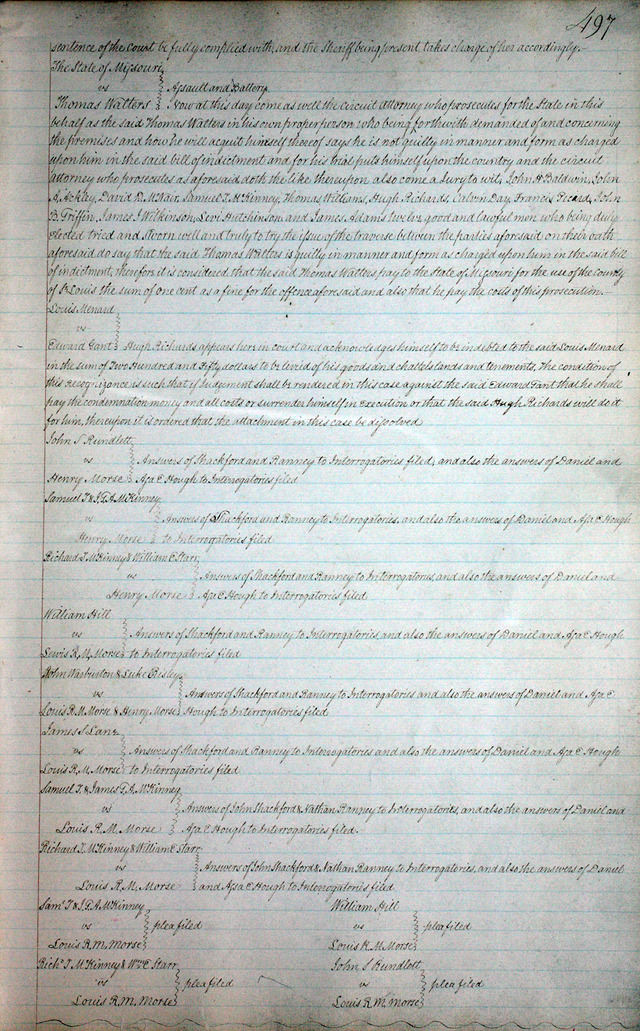 497
sentence of the Court be fully complied with, and the Sheriff being present takes charge of her accordingly.
The State of Missouri
vs
Assault and Battery
Thomas Walters
Now at this day come as well the circuit attorney who prosecutes for the State in this
behalf as the said Thomas Walters in his own proper person who being forthwith demanded of and concerning
the premises and how he will acquit himself thereof says he is not guilty in manner and form as charged
upon him in the said bill of indictment and for his trial puts himself upon the country and the circuit
attorney who prosecutes as aforesaid doth the like thereupon also come a Jury to wit, John H Baldwin, John
A, David R McNair, Samuel T. McKinney, Thomas Williams, Hugh Richards, Calvin Day, Francis Picard, John
B. Griffin, James J Wilkinson, Levi Hutchinson and James Adams twelve good and lawful men who being duly
elected tried and Sworn well and truly to try the issue of the traverse between the parties aforesaid on their oath
aforesaid do say that the said Thomas Walters is guilty in manner and form as charged upon him in the said bill
of indictment, therefore it is considered that the said Thomas Walters pay to the state of Missouri for the use of the county
of St Louis the sum of one cent as a fine for the offence aforesaid and also that he pay the costs of this prosecution.
Louis Menard
vs
Edward Gant
Hugh Richards appears here in court and acknowledges himself to be indebted to the said Louis Menard
in the sum of Two Hundred and Fifty dollars to be levied of his goods and chattels lands and tenements, the condition of
this recognizance is such that if Judgement shall be rendered in this case against the said Edward Gant that he shall
pay the condemnation money and all costs or surrender himself in execution or that the said Hugh Richards will do it
for him, thereupon it is ordered that the attachment in this case be dissolved
John S Rundlett
vs
Answers of Shackford and Ranney to Interrogatories filed, and also the answers of Daniel and
Henry Morse
Asa C Hough to Interrogatories filed
Samuel T & J.G.A. McKinney
vs
Answers of Shackford and Ranney to Interrogatories, and also the answers of Daniel and Asa C Hough
Henry Morse
to Interrogatories filed
Richard J McKinney & William C Starr
vs
Answers of Shackford and Ranney to Interrogatories and also the answers of Daniel and
Henry Morse
Asa C Hough to Interrogatories filed
William Hill
vs
Answers of Shackford and Ranney to Interrogatories and also the answers of Daniel and Asa C Hough
Lewis R. M. Morse
to Interrogatories filed
John Warburton & Luke Besley
vs
Answers of Shackford and Ranney to Interrogatories and also the answers of Daniel and Asa C
Louis R. M. Morse & Henry Morse
Hough to Interrogatories filed
James S Lane
vs
Answers of Shackford and Ranney to Interrogatories and also the answers of Daniel and Asa C Hough
Louis R. M. Morse
to Interrogatories filed
Samuel T. & James G. A. McKinney
vs
Answers of John Shackford & Nathan Ranney to Interrogatories, and also the answers of Daniel and
Louis R. M. Morse
Asa C Hough to Interrogatories filed.
Richard J. McKinney & William C Starr
vs
Answers of John Shackford & Nathan Ranney to Interrogatories, and also the answers of Daniel
Louis R. M. Morse
and Asa C Hough to Interrogatories filed
Saml T & J. G A McKinney
vs
plea filed
Louis R. M. Morse
William Hill
vs
plea filed
Louis R. M Morse
Richd J. McKinney & Wm C Starr
vs
plea filed
Louis R. M. Morse
John S Rundlett
vs
plea filed
Louis R. M. Morse